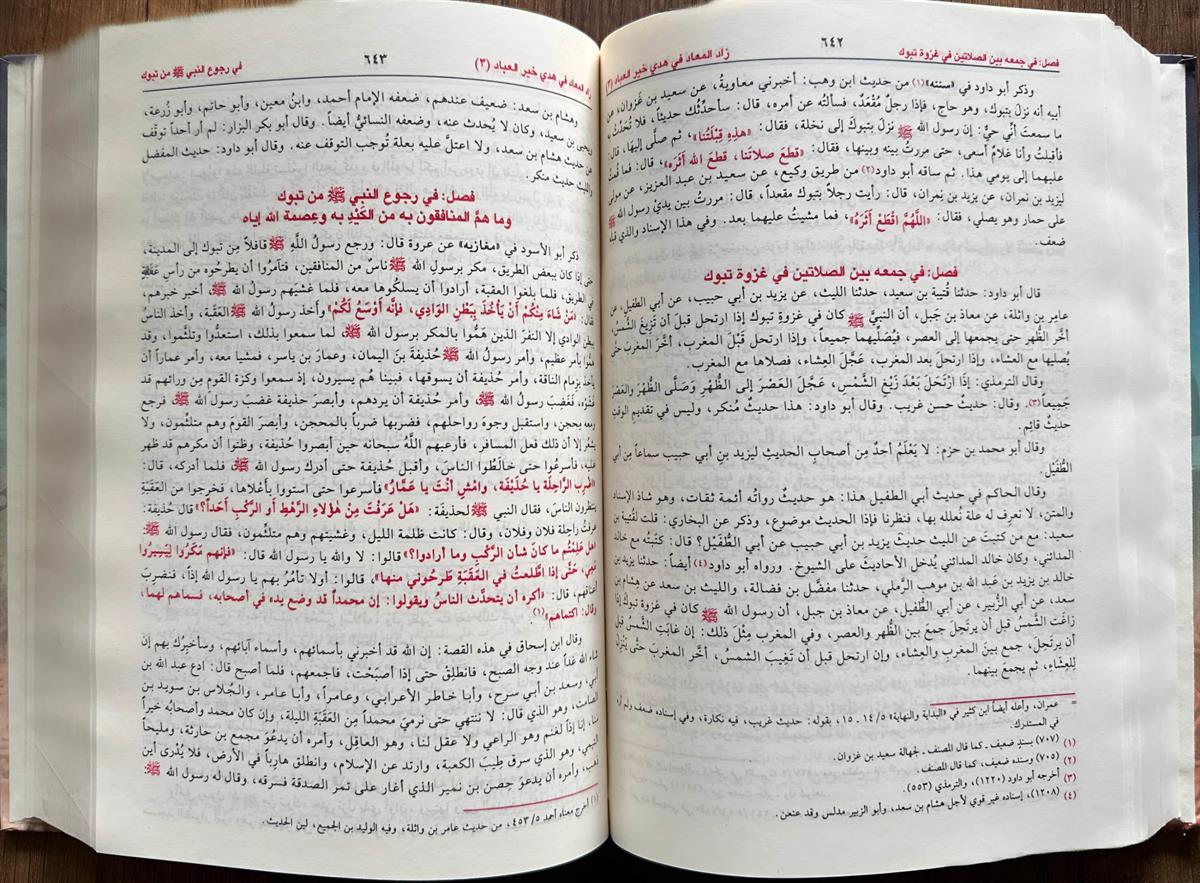 فصل: في جمعه بين الصلاتين في غزوة تبوك
٦٤٢
زاد المعاد في هدي خير العباد (٣)
وذكر أبو داود في «سننه»(١) من حديث ابن وهب: أخبرني معاوية، عن سعيد بن غَزْوان، عن
أبيه أنه نزل بتبوك، وهو حاج، فإذا رجلٌ مُقْعَدٌ، فسألته عن أمره، قال: سأحدِّثك حديثاً، فلا تُحَدِّثْ به
ما سمعتَ أنِّي حيٌّ: إن رسول الله ﷺ نزل بتبوك إلى نخلة، فقال: «هذِهِ قِبْلَتُنا»، ثم صلَّى إليها، قال:
فأقبلتُ وأنا غلامٌ أسعى، حتى مررتُ بينه وبينها، فقال: «قطَعَ صلاتنا، قطَعَ الله أثَرَه»، قال: فما قُمتُ
عليهما إلى يومي هذا. ثم ساقه أبو داود(٢) من طريق وكيع، عن سعيد بن عبد العزيز، عن مولى
ليزيد بن نمران، عن يزيد بن نمران، قال: رأيت رجلاً بتبوك مقعداً، قال: مررتُ بين يديْ رسول الله ﷺ
على حمار وهو يصلي، فقال: «اللَّهُمَّ اقْطَعْ أثَرَهُ»؛ فما مشيتُ عليهما بعد. وفي هذا الإسناد والذي قبله
ضعف.
فصل: في جمعه بين الصلاتين في غزوة تبوك
قال أبو داود: حدثنا قُتيبة بن سعيد، حدثنا الليث، عن يزيد بن أبي حبيب، عن أبي الطفيل، عن
عامِر بن واثلة، عن معاذ بن جَبل، أن النبيَّ ﷺ كان في غزوةِ تبوك إذا ارتحل قبلَ أن تَزِيغَ الشَّمْسُ،
أخَّر الظُّهر حتى يجمعها إلى العصر، فيُصَلِّيهما جميعاً، وإذا ارتحل قَبْلَ المغرب، أخَّرَ المغربَ حتى
يُصليها مع العِشاء، وإذا ارتحلَ بعد المغرب، عَجَّلَ العِشاء، فصلاها مع المغرب.
وقال الترمذي: إذا ارْتَحَلَ بَعْدَ زَيْغِ الشَّمْس، عَجَّلَ العَصْرَ إلى الظُّهْرِ وَصَلَّى الظُّهْرَ والعَصْرَ
جَميعاً(٣). وقال: حديثٌ حسن غريب. وقال أبو داود: هذا حديثٌ مُنكر، وليس في تقديمِ الوقتِ
حديثٌ قائِم.
وقال أبو محمد بن حزم: لا يَعْلَمُ أحدٌ مِن أصحابِ الحديثِ ليزيد بنِ أبي حبيب سماعاً مِن أبي
الطُّفَيْل.
وقال الحاكم في حديث أبي الطفيل هذا: هو حديثٌ رواتُه أئمة ثقات، وهو شاذ الإسناد
والمتن، لا نعرف له علة نُعلله بها، فنظرنا فإذا الحديث موضوع، وذكر عن البخاري: قلت لقُتيبة بن
سعيد: مع من كتبتَ عن الليث حديثَ يزيد بن أبي حبيب عن أبي الطُّفَيْل؟ قال: كتبتُه مع خالد
المدائني، وكان خالد المدائني يُدخل الأحاديثَ على الشيوخ. ورواه أبو داود(٤) أيضاً: حدثنا يزيد بن
خالد بن يزيد بن عبد الله بن موهب الرَّملي، حدثنا مفضّل بن فضالة، والليث بن سعد عن هِشام بن
سعد، عن أبي الزُّبير، عن أبي الطُّفيل، عن معاذ بن جبل، أن رسول الله ﷺ كان في غزوة تبوكَ إذا
زاغَتِ الشَّمْسُ قبل أن يرتَحِلَ جمعَ بين الظُّهر والعصر، وفي المغرب مِثْلَ ذلك: إن غابَتِ الشَّمْسُ قبل
أن يرتَحِلَ، جمع بين المغربِ والعِشاء، وإن ارتحل قبل أن تَغِيبَ الشمسُ، أخَّر المغربَ حتَّى يَنْزِلَ
لِلعِشاءِ، ثم يجمع بينهما.
= عمران، وأعله أيضاً ابن كثير في «البداية والنهاية» ١٤/٥ ـ ١٥، بقوله: حديث غريب، فيه نكارة، وفي إسناده ضعف ولم
في المستدرك.
(١) (٧٠٧) بسندٍ ضعيف ـ كما قال المصنف ـ لجهالة سعيد بن غزوان.
(٢) (٧٠٥) وسنده ضعيف، كما قال المصنف.
(٣) أخرجه أبو داود (١٢٢٠)، والترمذي (٥٥٣).
(٤) (١٢٠٨)، إسناده غير قوي لأجل هشام بن سعد، وأبو الزبير مدلس وقد عنعن.
زاد المعاد في هدي خير العباد (٣)
٦٤٣
في رجوع النبي ﷺ من تبوك
وهشام بن سعد: ضعيف عندهم، ضعفه الإمام أحمد، وابنُ معين، وأبو حاتم، وأبو زُرعة،
ويحيى بن سعيد، وكان لا يُحدث عنه، وضعفه النسائيُّ أيضاً. وقال أبو بكر البزار: لم أر أحداً توقّف
عن حديث هشام بن سعد، ولا اعتلَّ عليه بعلة تُوجب التوقف عنه. وقال أبو داود: حديث المفضل
والليث حديث منكر.
فصل: في رجوع النبي ﷺ من تبوك
وما همَّ المنافقون به من الكَيْدِ به وعِصمة الله إياه
ذكر أبو الأسود في «مغازيه» عن عروة قال: ورجع رسولُ اللَّهِ ﷺ قافلاً مِن تبوك إلى المدينة،
حتى إذا كان ببعض الطريق، مكر برسولِ الله ﷺ ناسٌ من المنافقين، فتآمروا أن يطرحُوه من رأس عقَبَةٍ
في الطريق، فلما بلغوا العقبة، أرادوا أن يسلكُوها معه، فلما غشيَهم رسولُ الله ﷺ، أخبر خبرهم،
فقال: «مَنْ شَاءَ مِنْكُمْ أَنْ يَأْخُذَ بِبَطْنِ الوَادِي، فإنَّه أَوْسَعُ لَكُمْ» وأخذ رسولُ الله ﷺ العَقَبة، وأخذ الناسُ
ببطن الوادي إلا النفر الذين هَمُّوا بالمكر برسول الله ﷺ، لما سمعوا بذلك، استعدُّوا وتلثَّموا، وقد
همُّوا بأمر عظيم، وأمر رسولُ الله ﷺ حُذيفةَ بنَ اليمان، وعمارَ بن ياسر، فمشيا معه، وأمر عماراً أن
يأخذ بزمام الناقة، وأمر حُذيفة أن يسوقها، فبينا هُم يسيرون، إذ سمعوا وكزةَ القومِ مِن ورائهم قد
غَشَوْه، فَغَضِبَ رسولُ الله ﷺ، وأمر حُذيفةَ أن يردهم، وأبصر حذيفةُ غضبَ رسول الله ﷺ، فرجع
ومعه بحجن، واستقبل وجوهَ رواحلهم، فضربها ضرباً بالمحجن، وأبصَرَ القومُ وهم متلثِّمون، ولا
يشعرُ إلا أن ذلك فعل المسافر، فأرعبهم اللَّهُ سبحانه حين أبصروا حُذيفة، وظنّوا أن مكرهم قد ظهر
عليه، فأسرعُوا حتى خالَطُوا الناسَ، وأقبل حُذيفة حتى أدرك رسول الله ﷺ، فلما أدركه، قال:
«اضْرِبِ الرَّاحِلَةَ يا حُذَيْفَة، وامْشِ أنْتَ يا عَمَّارُ» فأسرعوا حتى استووا بأعْلاها، فخرجوا من العَقَبَةِ
ينتظِرون الناسَ، فقال النبي ﷺ لحذيفة: «هَلْ عَرَفْتَ مِنْ هٰؤُلاءِ الرَّهْطِ أو الرَّكْبِ أحَداً؟» قال حُذيفة:
عرفتُ راحِلةَ فلان وفلان، وقال: كانت ظُلمة الليل، وغشيتهم وهم متلثِّمون، فقال رسول الله ﷺ:
«هل عَلِمْتُم ما كانَ شأن الرَّكْبِ وما أرادوا؟» قالوا: لا والله يا رسول الله قال: «فإنهم مَكَرُوا لِيَسِيرُوا
معي، حَتَّى إذا اطَّلعتُ في العَقَبَةِ طَرَحُوني منها»، قالوا: أولا تأمُرُ بهم يا رسول الله إذاً، فنضرِبَ
أعناقَهم، قال: «أكره أن يتحدَّث الناسُ ويقولوا: إن محمداً قد وضع يده في أصحابه، فسماهم لهما،
وقال: اكتماهم»(١).
وقال ابن إسحاق في هذه القصة: إن الله قد أخبرني بأسمائهم، وأسماء آبائهم، وسأخبرُك بهم إن
شاء الله غداً عند وجه الصبح، فانطلِقْ حتى إذا أصبَحْتَ، فاجمعهم، فلما أصبح قال: ادع عبد الله بن
أبي، وسعد بن أبي سرح، وأبا خاطر الأعرابي، وعامراً، وأبا عامر، والجُلاس بن سويد بن
الصامت، وهو الذي قال: لا ننتهي حتى نرميَ محمداً مِن العَقَبَةِ الليلة، وإن كان محمد وأصحابُه خيراً
منا، إنا إذاً لغنم وهو الراعي ولا عقل لنا، وهو العاقِل، وأمره أن يدعُوَ مجمع بن حارثة، ومليحاً
التيمي، وهو الذي سرق طِيبَ الكعبة، وارتد عن الإسلام، وانطلق هارباً في الأرض، فلا يُدرى أين
ذهب، وأمره أن يدعوَ حِصن بن نمير الذي أغار على تمر الصدقة فسرقه، وقال له رسول الله ﷺ:
(١) أخرج معناه أحمد ٤٥٣/٥، من حديث عامر بن واثلة، وفيه الوليد بن الجميع، لين الحديث.